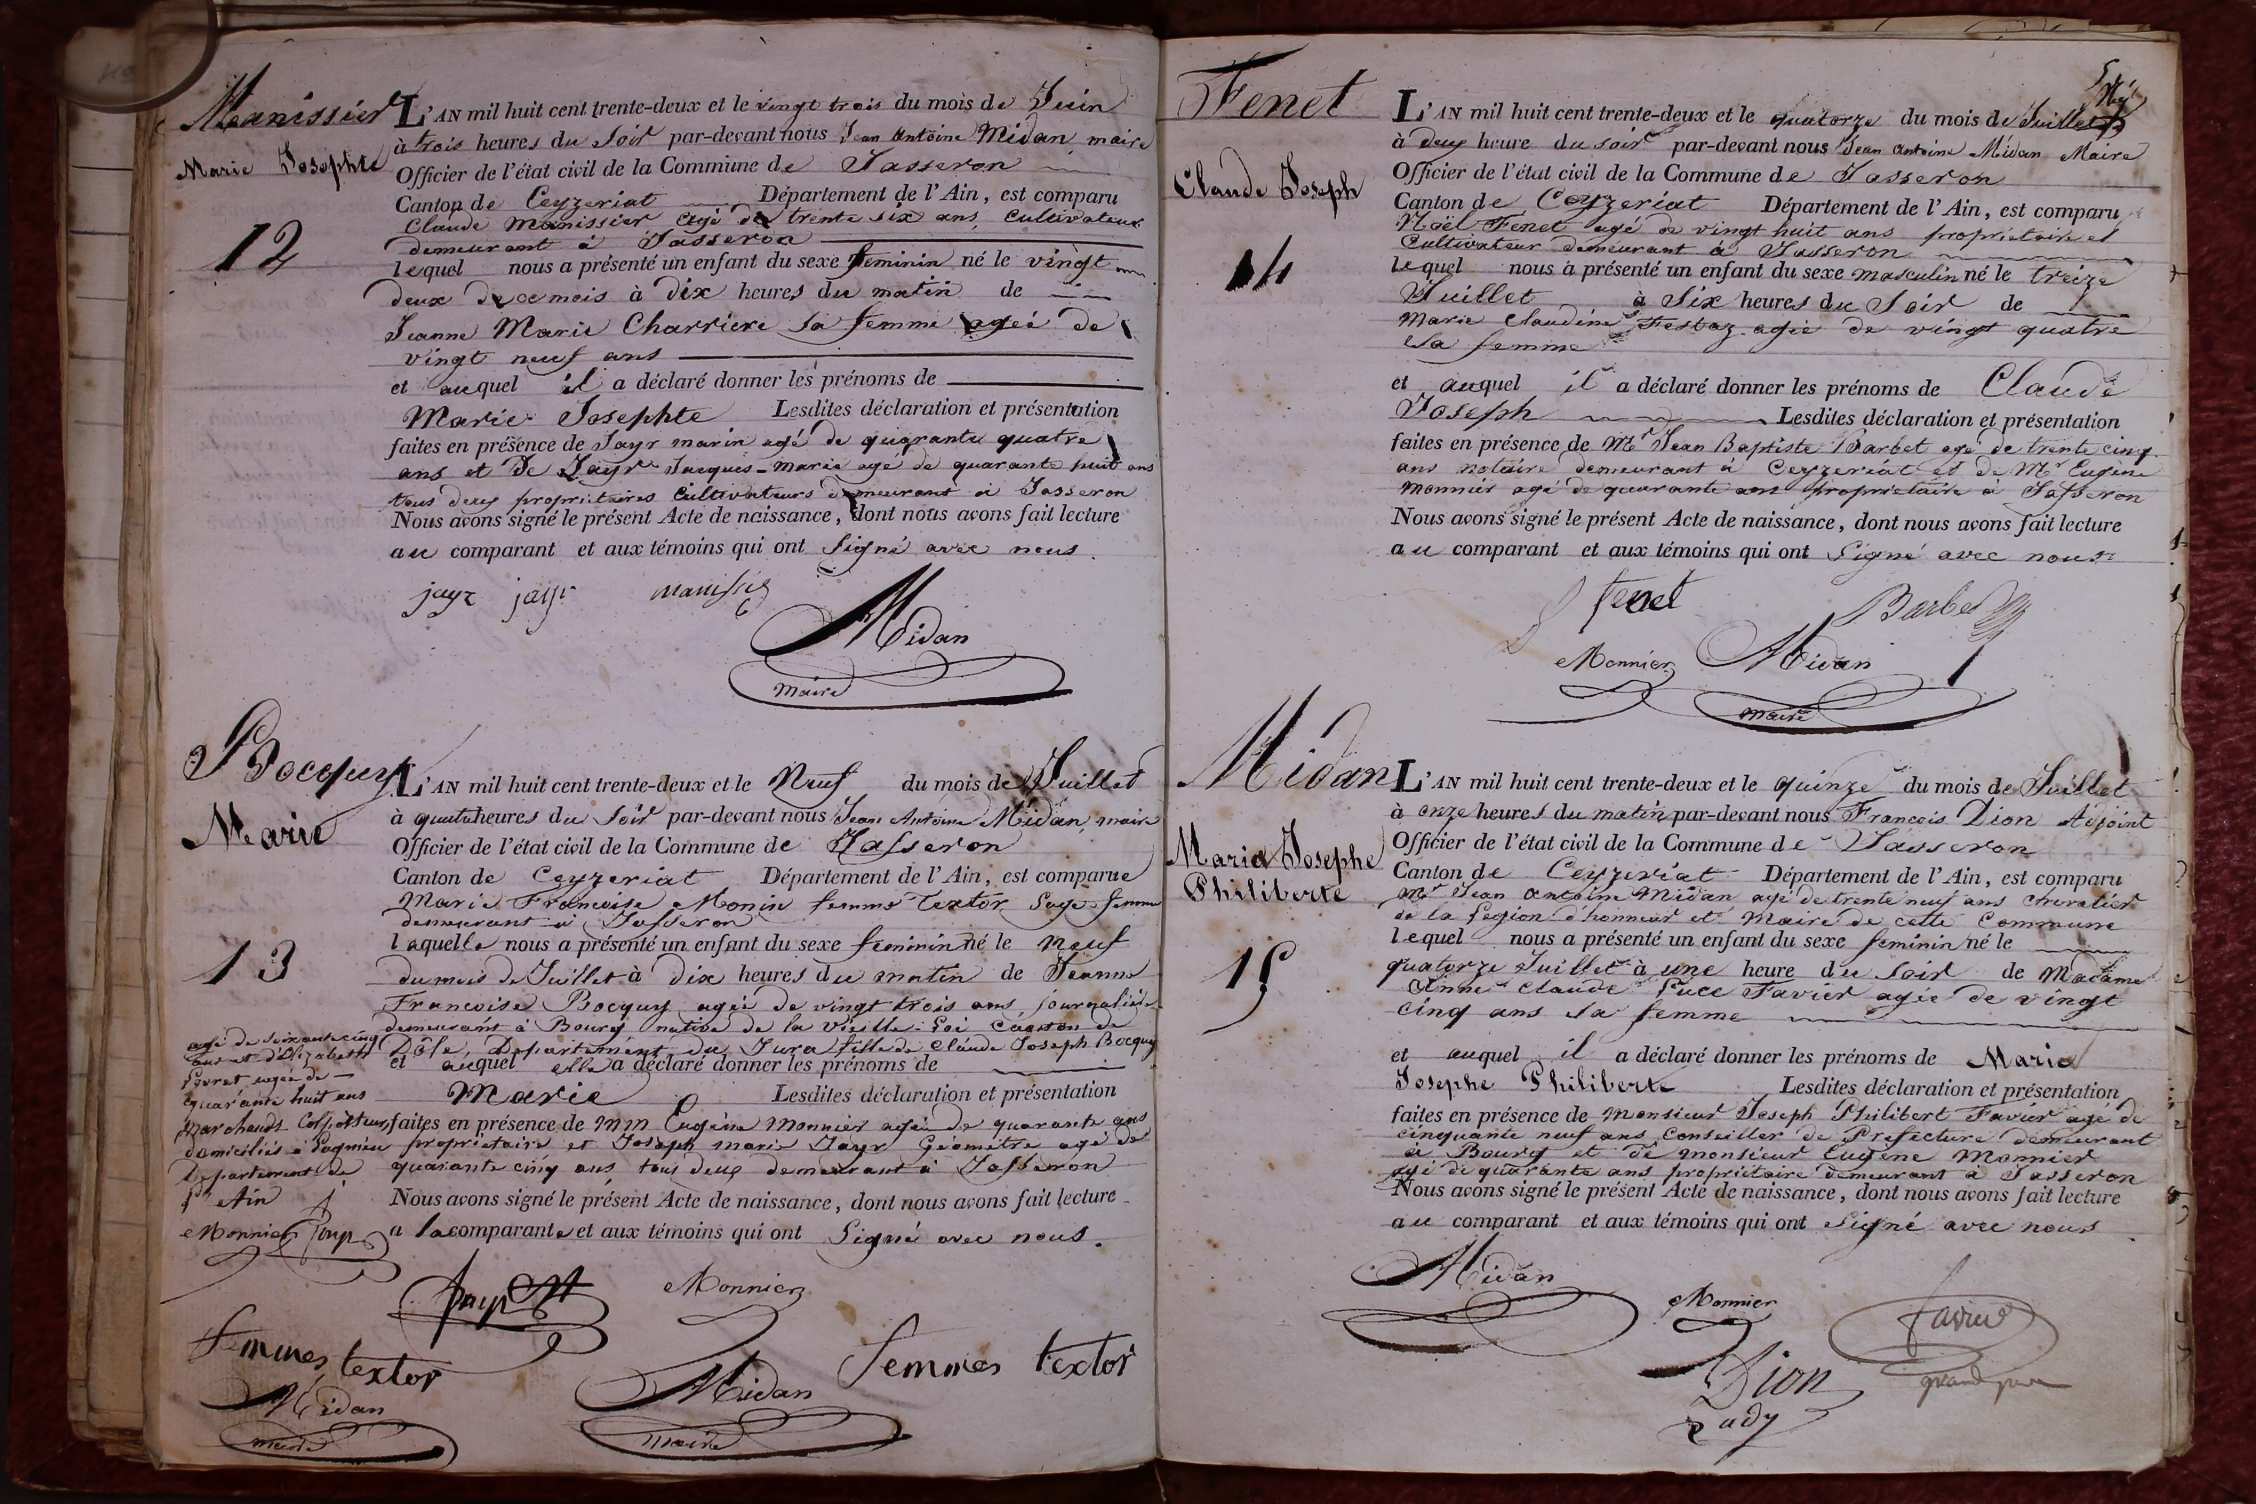 Manissier
Marie Josephte
12
L'AN mil huit cent trente-deux et le vingt trois du mois de Juin
à trois heures du soir par-devant nous Jean Antoine Midan, maire
Officier de l'état civil de la Commune de Jasseron
Canton de Ceyzeriat Département de l'Ain, est comparu
Claude Manissier agé de trente six ans, cultivateur
demeurant à Jasseron
lequel nous a présenté un enfant du sexe feminin né le vingt
deux de ce mois à dix heures du matin de
Jeanne Marie Charriere sa femme agée de
vingt neuf ans
et auquel il a déclaré donner les prénoms de
Marie Josephte Lesdites déclaration et présentation
faites en présence de Jayr marin agé de quarante quatre
ans et de Jayr Jacques-marie agé de quarante huit ans
tous deux propriétaires cultivateurs demeurant à Jasseron
Nous avons signé le présent Acte de naissance, dont nous avons fait lecture
au comparant et aux témoins qui ont signé avec nous.
jayr jayr manissier
Midan
maire
Bocquy
Marie
13
L'AN mil huit cent trente-deux et le Neuf du mois de Juillet
à quatre heures du soir par-devant nous Jean Antoine Midan, maire
Officier de l'état civil de la Commune de Jasseron
Canton de Ceyzeriat Département de l'Ain, est comparue
Marie Francoise Monin femme Textor sage femme
demeurant à Jasseron
laquelle nous a présenté un enfant du sexe feminin né le neuf
du mois de Juillet à dix heures du matin de Jeanne
Francoise Bocquy agée de vingt trois ans, journalière
demeurant à Bourg native de la vieille Loi canton de
Dôle, Département du Jura fille de Claude Joseph Bocquy
agé de soixante cinq
ans et d'Elizabeth
agée de
quarante huit ans
marchands colporteurs
domiciliés à Lagnieu
Département de
l'Ain
Monnier Jayr
et auquel elle a déclaré donner les prénoms de
Marie Lesdites déclaration et présentation
faites en présence de MM Eugène Monnier agé de quarante ans
propriétaire et Joseph marie Jayr Géomètre agé de
quarante cinq ans, tous deux demeurant à Jasseron
Nous avons signé le présent Acte de naissance, dont nous avons fait lecture
a la comparante et aux témoins qui ont signé avec nous.
Jayr Monnier
femmes textor
Midan
maire
Midan
maire
femmes textor
Fenet
Claude Joseph
14
L'AN mil huit cent trente-deux et le quatorze du mois de Juillet
à deux heure du soir par-devant nous Jean Antoine Midan Maire
Officier de l'état civil de la Commune de Jasseron
Canton de Ceyzeriat Département de l'Ain, est comparu
Noël Fenet agé de vingt huit ans propriétaire et
Cultivateur demeurant à Jasseron
lequel nous a présenté un enfant du sexe masculin né le treize
Juillet à six heures du soir de
Marie Claudine Festaz agée de vingt quatre
sa femme
et auquel il a déclaré donner les prénoms de Claude
Joseph Lesdites déclaration et présentation
faites en présence de Mr Jean Baptiste Barbet agé de trente cinq
ans notaire demeurant à Ceyzeriat et de Mr Eugène
Monnier agé de quarante ans propriétaire à Jasseron
Nous avons signé le présent Acte de naissance, dont nous avons fait lecture
au comparant et aux témoins qui ont signé avec nous
fenet Barbet
Monnier Midan
maire
Midan
Marie Josephe
Philiberte
15
L'AN mil huit cent trente-deux et le quinze du mois de Juillet
à onze heures du matin par-devant nous Francois Dion Adjoint
Officier de l'état civil de la Commune de Jasseron
Canton de Ceyzeriat Département de l'Ain, est comparu
Mr Jean Antoine Midan agé de trente neuf ans chevalier
de la Légion d'honneur et Maire de cette Commune
lequel nous a présenté un enfant du sexe feminin né le
quatorze Juillet à une heure du soir de Madame
Anne Claude Luce Favier agée de vingt
cinq ans sa femme
et auquel il a déclaré donner les prénoms de Marie
Josephe Philiberte Lesdites déclaration et présentation
faites en présence de Monsieur Joseph Philibert Favier agé de
cinquante neuf ans Conseiller de Préfecture demeurant
à Bourg et de monsieur Eugène Monnier
agé de quarante ans propriétaire demeurant à Jasseron
Nous avons signé le présent Acte de naissance, dont nous avons fait lecture
au comparant et aux témoins qui ont signé avec nous
Midan
Monnier
favier
grand père
Dion